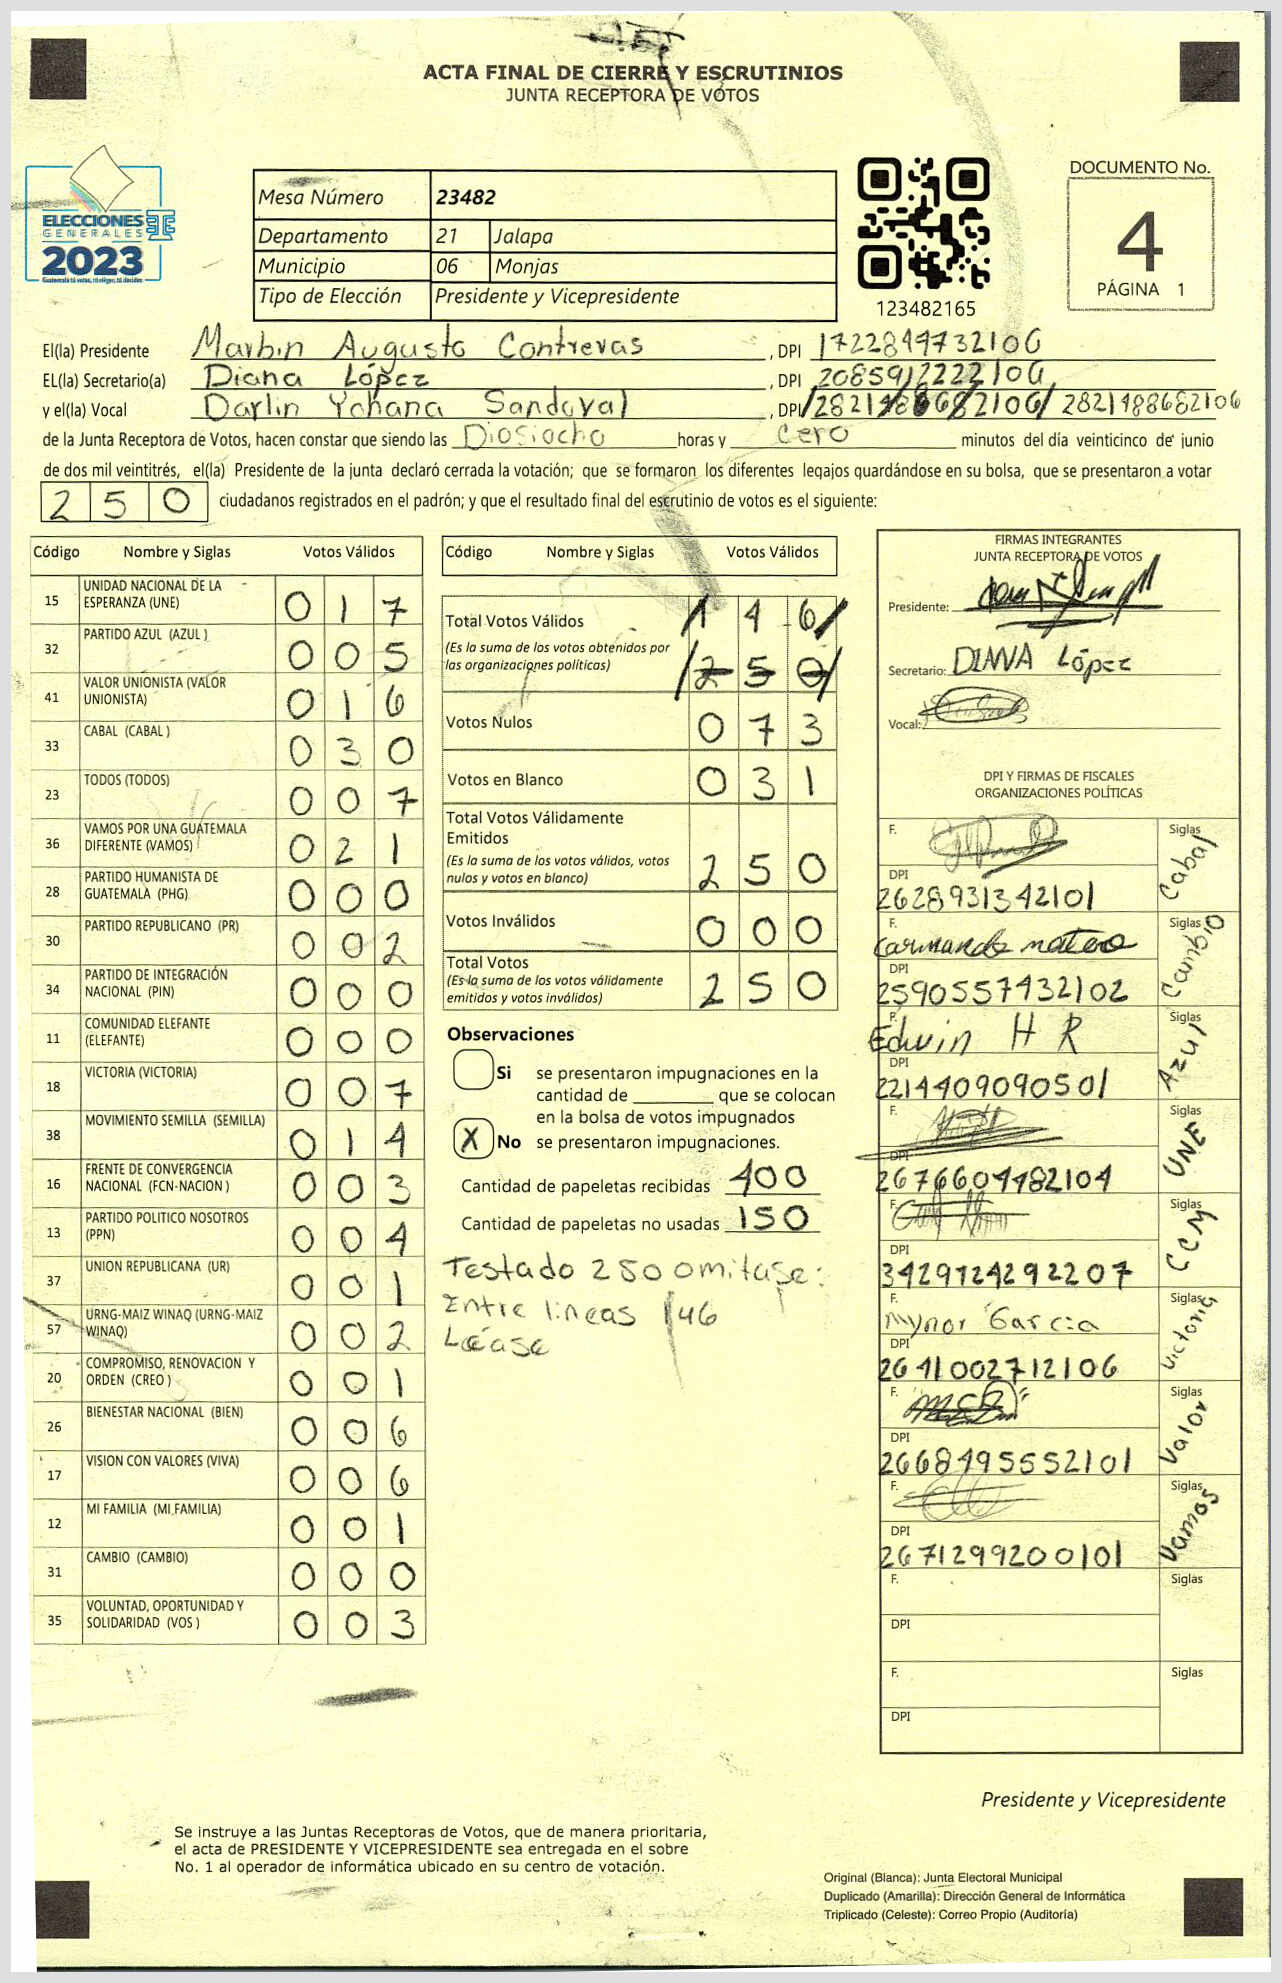 ACTA FINAL DE CIERRE Y ESCRUTINIOS
JUNTA RECEPTORA DE VOTOS
ELECCIONES
GENERALES
2023
Guatemala tú votas, tú eliges, tú decides
Mesa Número 23482
Departamento 21 Jalapa
Municipio 06 Monjas
Tipo de Elección Presidente y Vicepresidente
123482165
DOCUMENTO No.
4
PÁGINA 1
El(la) Presidente Marbin Augusto Contreras , DPI 1722849732106
EL(la) Secretario(a) Diana López , DPI 2085912222106
y el(la) Vocal Darlin Yohana Sandoval , DPI 2821488682106
de la Junta Receptora de Votos, hacen constar que siendo las Diosiocho horas y cero minutos del día veinticinco de junio
de dos mil veintitrés, el(la) Presidente de la junta declaró cerrada la votación; que se formaron los diferentes legajos guardándose en su bolsa, que se presentaron a votar
250 ciudadanos registrados en el padrón; y que el resultado final del escrutinio de votos es el siguiente:
Código Nombre y Siglas Votos Válidos
15 UNIDAD NACIONAL DE LA ESPERANZA (UNE) 017
32 PARTIDO AZUL (AZUL ) 005
41 VALOR UNIONISTA (VALOR UNIONISTA) 016
33 CABAL (CABAL ) 030
23 TODOS (TODOS) 007
36 VAMOS POR UNA GUATEMALA DIFERENTE (VAMOS) 021
28 PARTIDO HUMANISTA DE GUATEMALA (PHG) 000
30 PARTIDO REPUBLICANO (PR) 002
34 PARTIDO DE INTEGRACIÓN NACIONAL (PIN) 000
11 COMUNIDAD ELEFANTE (ELEFANTE) 000
18 VICTORIA (VICTORIA) 007
38 MOVIMIENTO SEMILLA (SEMILLA) 014
16 FRENTE DE CONVERGENCIA NACIONAL (FCN-NACION ) 003
13 PARTIDO POLITICO NOSOTROS (PPN) 004
37 UNION REPUBLICANA (UR) 001
57 URNG-MAIZ WINAQ (URNG-MAIZ WINAQ) 002
20 COMPROMISO, RENOVACION Y ORDEN (CREO ) 001
26 BIENESTAR NACIONAL (BIEN) 006
17 VISION CON VALORES (VIVA) 006
12 MI FAMILIA (MI FAMILIA) 001
31 CAMBIO (CAMBIO) 000
35 VOLUNTAD, OPORTUNIDAD Y SOLIDARIDAD (VOS ) 003
Código Nombre y Siglas Votos Válidos
Total Votos Válidos 146
(Es la suma de los votos obtenidos por las organizaciones políticas) 250
Votos Nulos 073
Votos en Blanco 031
Total Votos Válidamente Emitidos
(Es la suma de los votos válidos, votos nulos y votos en blanco) 250
Votos Inválidos 000
Total Votos
(Es la suma de los votos válidamente emitidos y votos inválidos) 250
Observaciones
Si se presentaron impugnaciones en la
cantidad de ________ que se colocan
en la bolsa de votos impugnados
X No se presentaron impugnaciones.
Cantidad de papeletas recibidas 400
Cantidad de papeletas no usadas 150
Testado 250 omitase:
Entre lineas 146
Léase
FIRMAS INTEGRANTES
JUNTA RECEPTORA DE VOTOS
Presidente:
Secretario: DIANA López
Vocal:
DPI Y FIRMAS DE FISCALES
ORGANIZACIONES POLÍTICAS
F. Siglas Cabal
DPI
2628931342101
F. Siglas Cambio
DPI
2590557432102
F. Edwin H R Siglas Azul
DPI
2214409090501
F. Siglas UNE
DPI
2676604482104
F. Siglas CCM
DPI
3429124292207
F. Mynor Garcia Siglas Victoria
DPI
2641002712106
F. Siglas Valor
DPI
2668495552101
F. Siglas Vamos
DPI
2671299200101
F. Siglas
DPI
F. Siglas
DPI
Presidente y Vicepresidente
Se instruye a las Juntas Receptoras de Votos, que de manera prioritaria,
el acta de PRESIDENTE Y VICEPRESIDENTE sea entregada en el sobre
No. 1 al operador de informática ubicado en su centro de votación.
Original (Blanca): Junta Electoral Municipal
Duplicado (Amarilla): Dirección General de Informática
Triplicado (Celeste): Correo Propio (Auditoría)